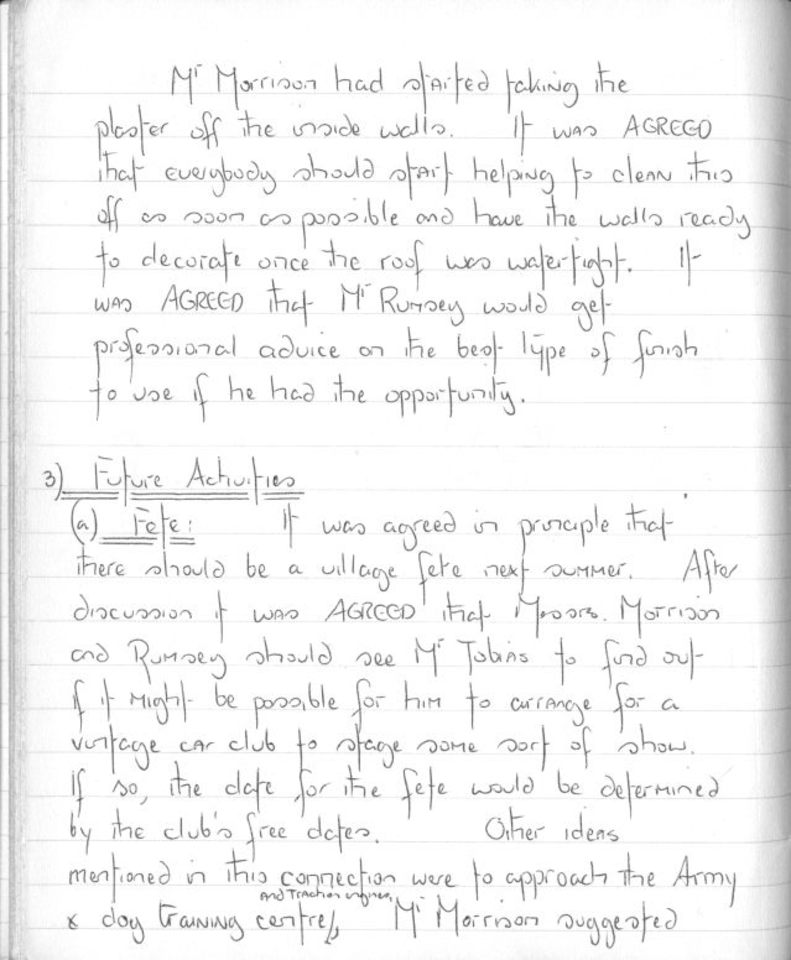 Mr Morrison had started taking the
plaster off the inside walls. It was AGREED
that everybody should start helping to clean this
off as soon as possible and have the walls ready
to decorate once the roof was watertight. It
was AGREED that Mr Rumsey would get
professional advice on the best type of finish
to use if he had the opportunity.
3) Future Activities
(a) Fete: It was agreed in principle that
there should be a village fete next summer. After
discussion it was AGREED that Messrs. Morrison
and Rumsey should see Mr Tobias to find out
if it might be possible for him to arrange for a
vintage car club to stage some sort of show.
If so, the date for the fete would be determined
by the club's free dates. Other ideas
mentioned in this connection were to approach the Army
and Traction engines,
& dog training centres, Mr Morrison suggested